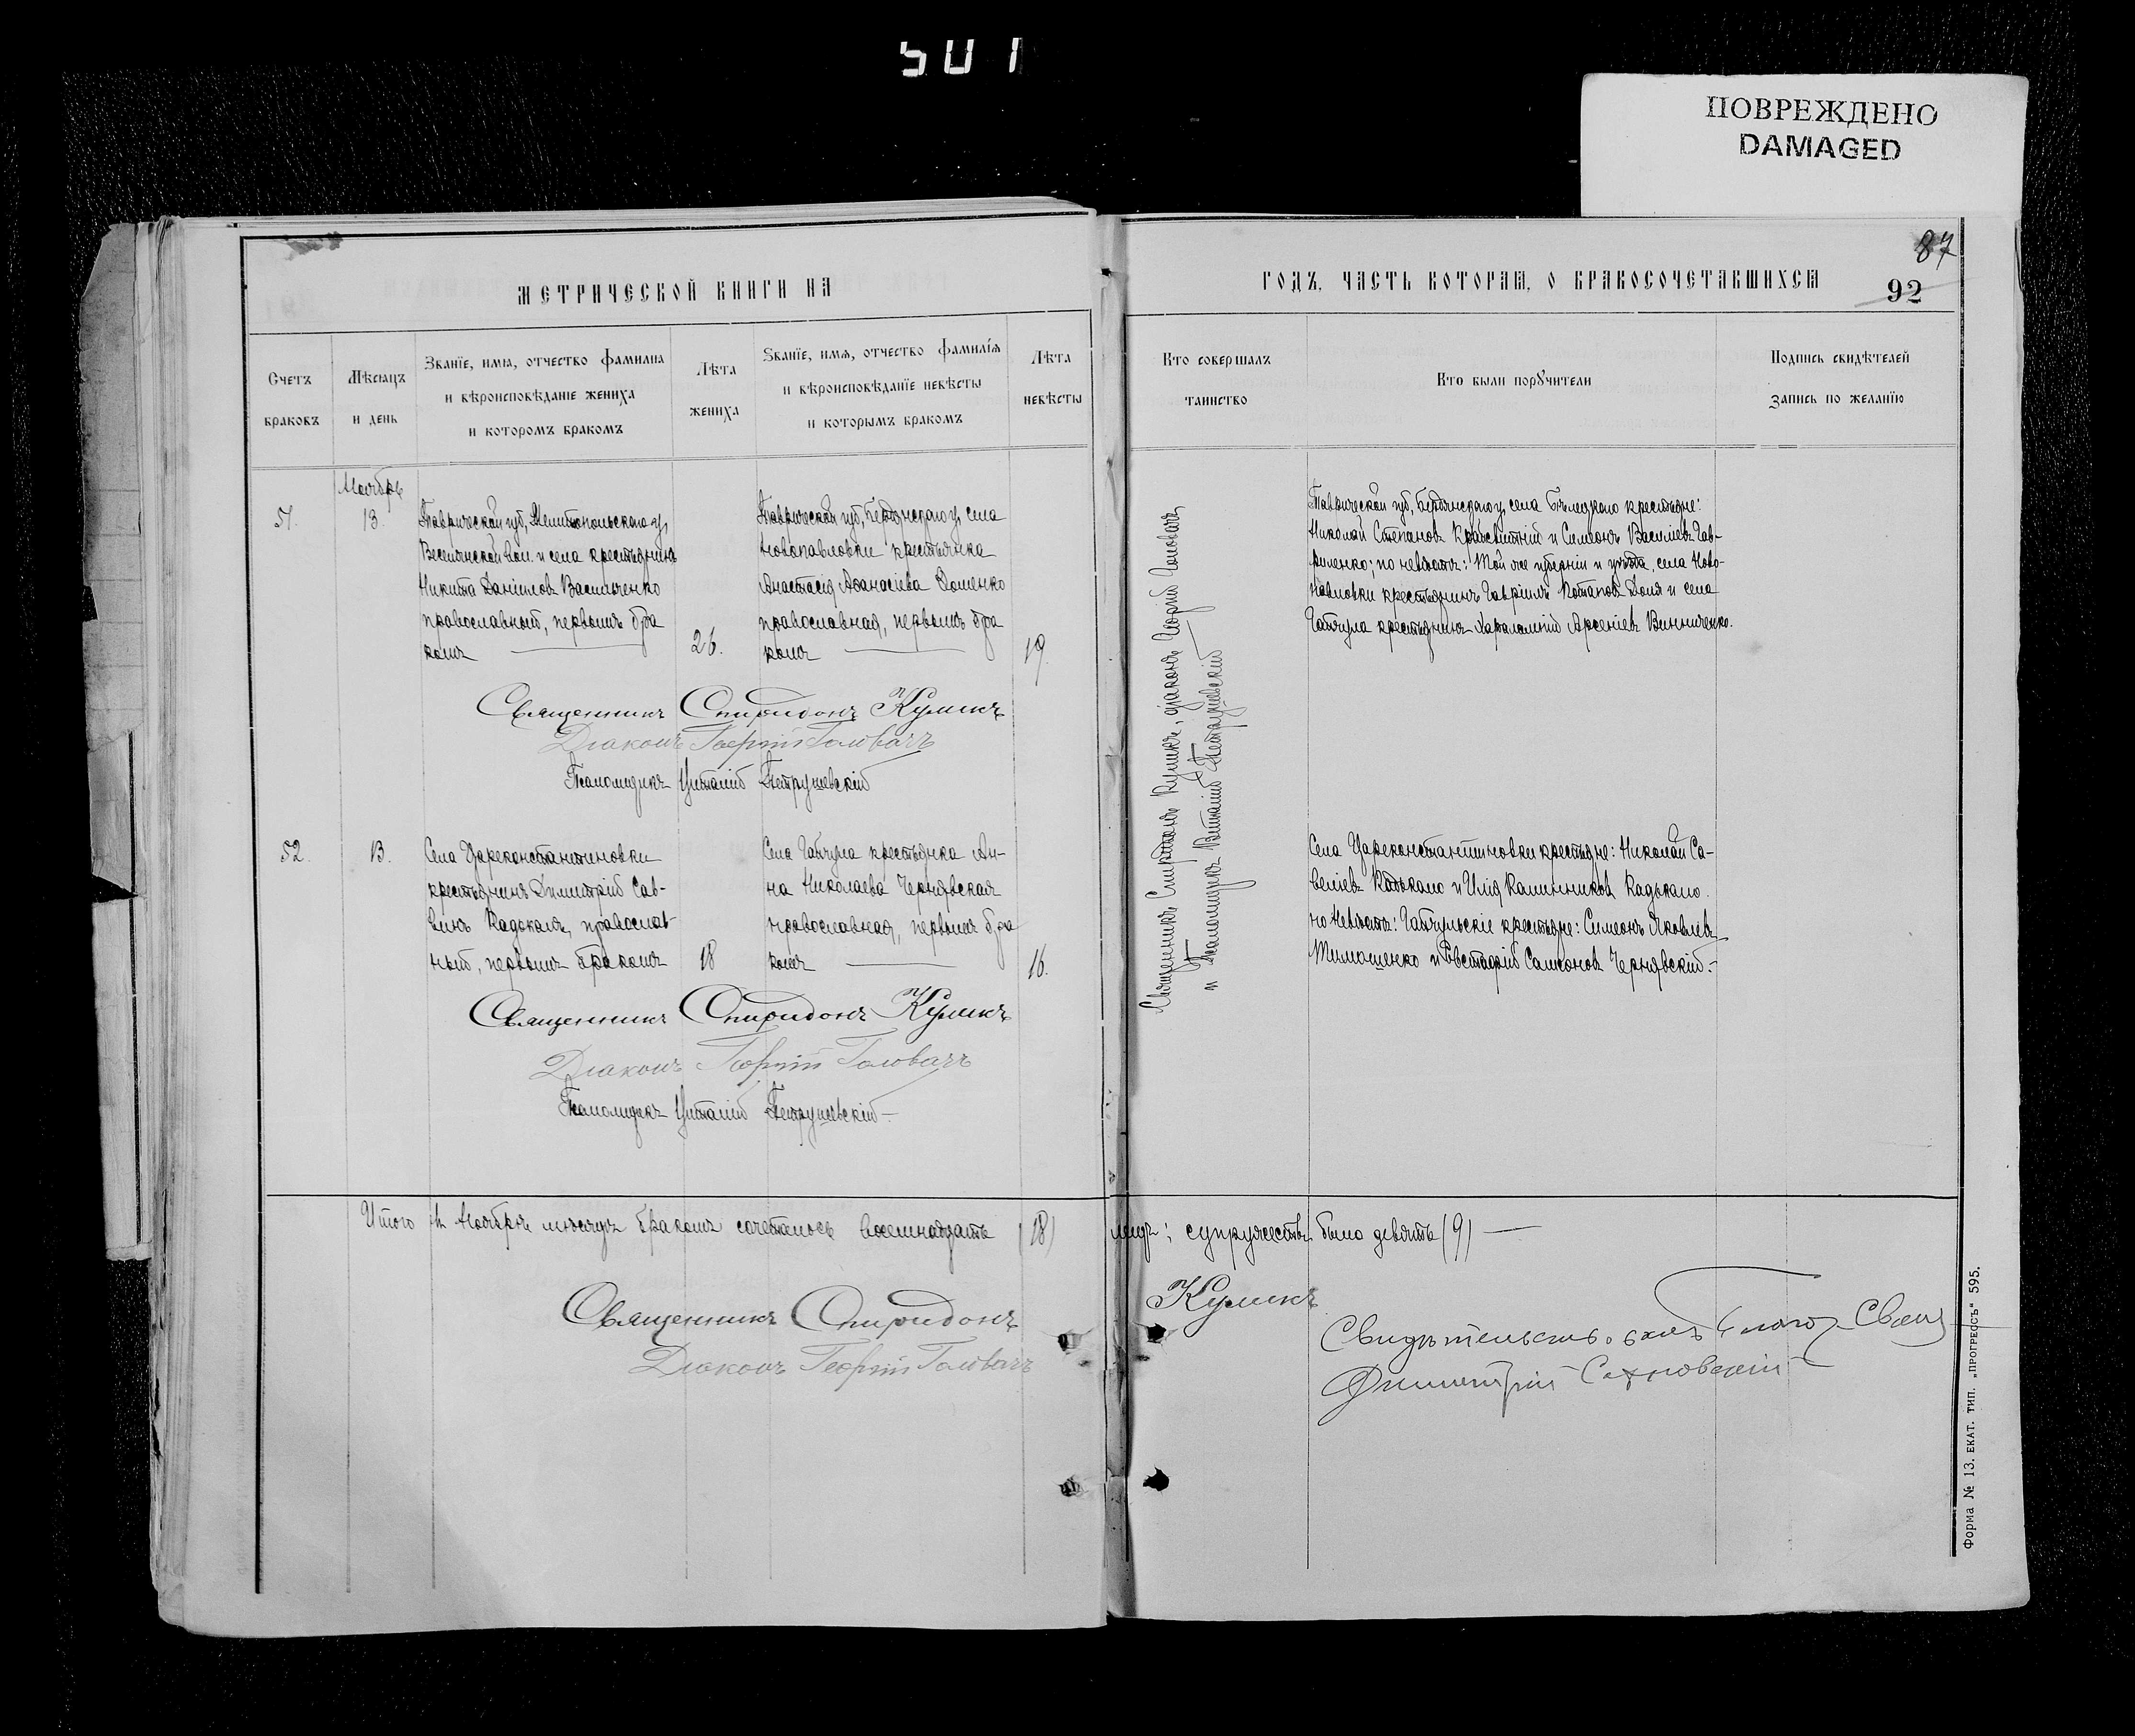 501
ПОВРЕЖДЕНО
DAMAGED
87
92
МЕТРИЧЕСКОЙ КНИГИ НА
ГОДЪ, ЧАСТЬ ВТОРАЯ, О БРАКОСОЧЕТАВШИХСЯ
Счетъ браковъ
Мѣсяцъ и день
Званїе, имя, отчество фамилия и вѣроисповѣданіе жениха и которомъ бракомъ
Лѣта жениха
Званїе, имя, отчество фамилїя и вѣроисповѣданїе невѣсты и которымъ бракомъ
Лѣта невѣсты
Кто совершалъ таинство
Кто были порꙋчители
Подпись свидѣтелей запись по желанїю
Ноябрь
51.
13.
Таврической губ, Мелитопольскаго у,
Веселянской вол. и села крестьянинъ
Никита Даніиловъ Васильченко
православный, первымъ бра
комъ
26.
Таврической губ, Бердянскаго у, села
Новопавловки крестьянка
Анастасія Аѳанасіева Доменко
православная, первымъ бра
комъ
19.
Священникъ Спиридонъ Куликъ, діаконъ Георгій Головачъ
и Псаломщикъ Виталій Петрушевскій
Таврической губ, Бердянскаго у, села крестьяне:
Николай Степановъ и Симеонъ Василіевъ Гав-
риленко; по невѣстѣ: Той же губерніи и уѣзда, села Ново-
павловки крестьянинъ Гавріилъ Потаповъ Доля и села
Гайчула крестьянинъ Харалампій Арсеніевъ Винниченко.
Священникъ Спиридонъ Куликъ
Діаконъ Георгій Головачъ
Псаломщикъ Виталій Петрушевскій
52.
13.
Села Цареконстантиновки
крестьянинъ Димитрій Сав-
винъ Кадькало, православ-
ный, первымъ бракомъ
18
Села Гайчула крестьянка Ан-
на Николаева Чернявская
православная, первымъ бра
комъ
16.
Села Цареконстантиновки крестьяне: Николай Са-
веліевъ Кадькало и Илія Калинниковъ Кадькало.
по невѣстѣ: Гайчульскіе крестьяне: Симеонъ Яковлевъ
Тимошенко и Евстафій Самсоновъ Чернявскій.
Священникъ Спиридонъ Куликъ
Діаконъ Георгій Головачъ
Псаломщикъ Виталій Петрушевскій
Итого въ Ноябрѣ мѣсяцѣ бракомъ сочеталось восемнадцать (18) лицъ; супружествъ было девять (9)
Священникъ Спиридонъ Куликъ
Діаконъ Георгій Головачъ
Свидѣтельствовалъ Благоч. Свящ
Димитрій Сахновскій
Форма № 13. ЕКАТ. ТИП. „ПРОГРЕССЪ“ 595.